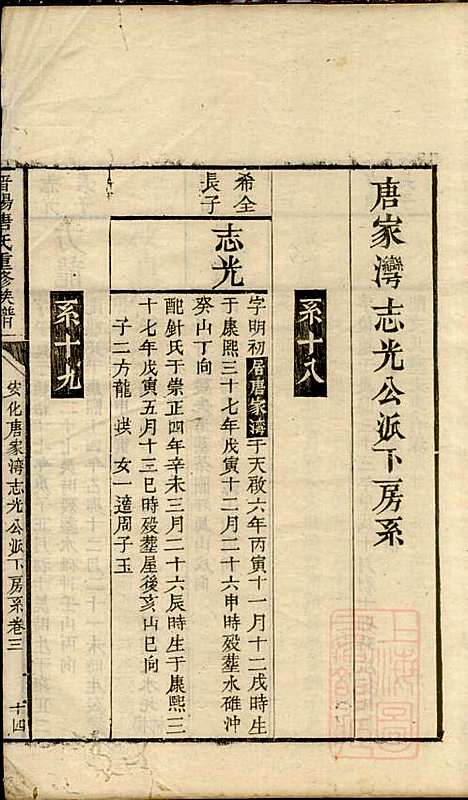 唐家灣志光公派下房系
系十八
希全
長子
志光
字明初居唐家灣于天啟六年丙寅十一月十二戌時生
于康熙三十七年戊寅十二月二十六申時殁塟水碓冲
癸山丁向
配針氏于崇正四年辛未三月二十六辰時生于康熙三
十七年戊寅五月十三巳時殁塟屋後亥山巳向
子二方龍 女一適周子玉
系十九
晋陽唐氏重修族譜
安化唐家灣志光公派下房系卷三
十四